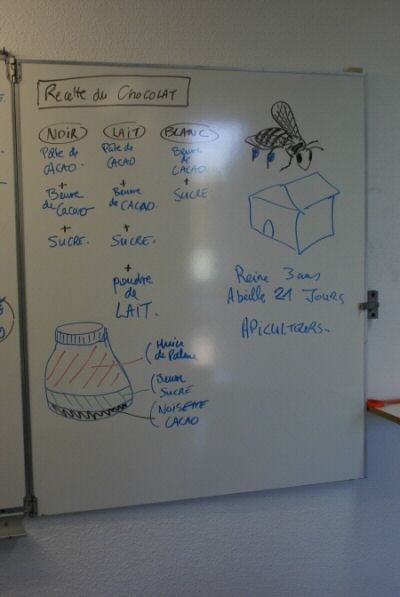 Recette du CHOCOLAT
NOIR
Pâte de
CACAO.
+
Beurre
de Cacao
+
SUCRE.
LAIT
Pâte de
CACAO
+
Beurre
de CACAO.
+
SUCRE.
+
poudre
de
LAIT.
BLANC
Beurre
de
CACAO
+
SUCRE.
Reine 3 ans
Abeille 21 JOURS
APICULTEURS.
Huile
de Palme
Beurre
SUCRE
NOISETTE
CACAO